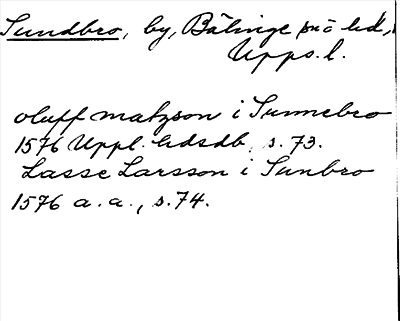 Sundbro, by, Bälinge sn o hd,
Upps. l.
oluff matzson i Sunnebro
1576 Uppl. hdsdb, s. 73.
Lasse Larsson i Sunbro
1576 a. a., s. 74.